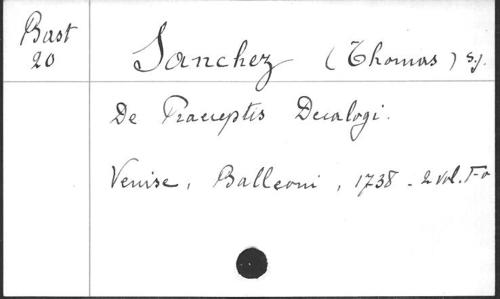 Bast
20
Sanchez (Thomas) s.j.
De Praeceptis Decalogi.
Venise, Balleoni, 1738 - 2 vol. F-o